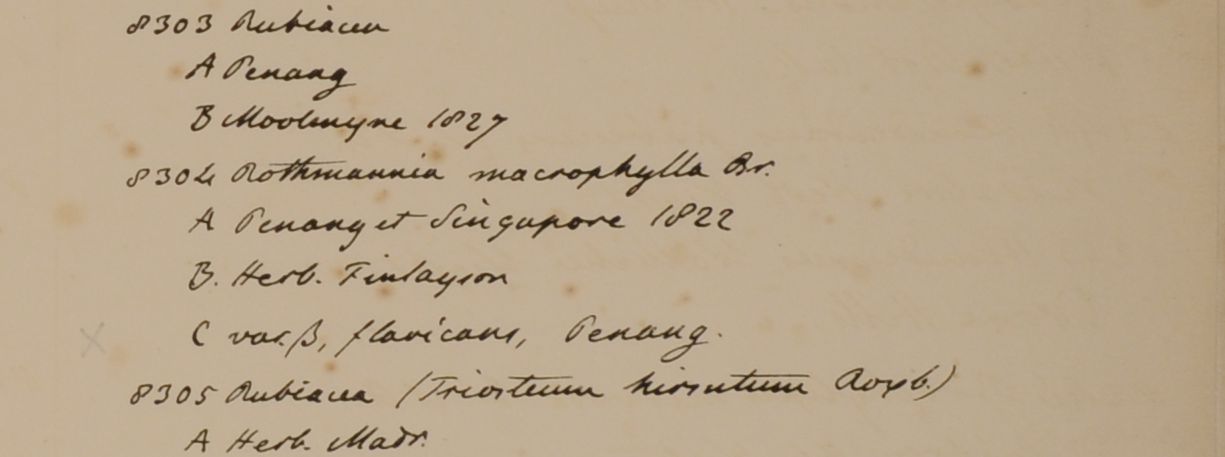 8303 Rubiacea
A Penang
B Moolmyne 1827
8304 Rothmannia macrophylla Br.
A Penang et Singapore 1822
B. Herb. Finlayson
C var. β, flavicans, Penang.
8305 Rubiacea (Triosteum hirsutum Roxb.)
A Herb. Madr.